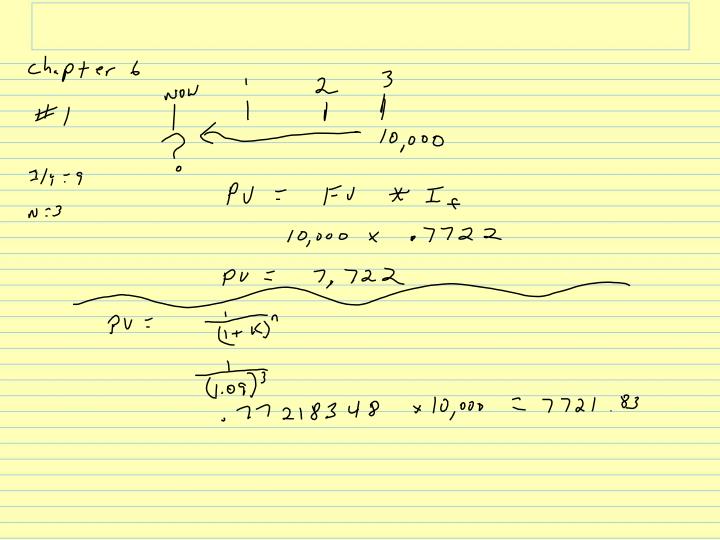 Chapter 6
NOW 1 2 3
#1
? 10,000
I/Y = 9
PV = FV * If
N = 3
10,000 x .7722
PV = 7,722
PV = 1/(1+K)^n
1/(1.09)^3
.77218348 x 10,000 = 7721.83